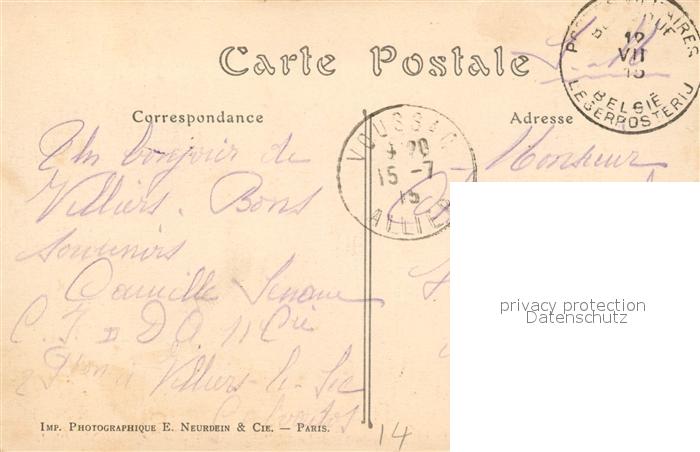 Carte Postale
POSTES MILITAIRES
BELGIQUE
S. M.
12
VII
15
BELGIË
LEGERPOSTERIJ
Correspondance
Adresse
VOUSSAC
15 -7
15
ALLIER
Un bonjour de
Villiers. Bons
souvenirs
Camille
C. I. D A 11 Cie
Villiers-le-Sec
Calvados
Monsieur
privacy protection
Datenschutz
IMP. PHOTOGRAPHIQUE E. NEURDEIN & CIE. — PARIS.
14